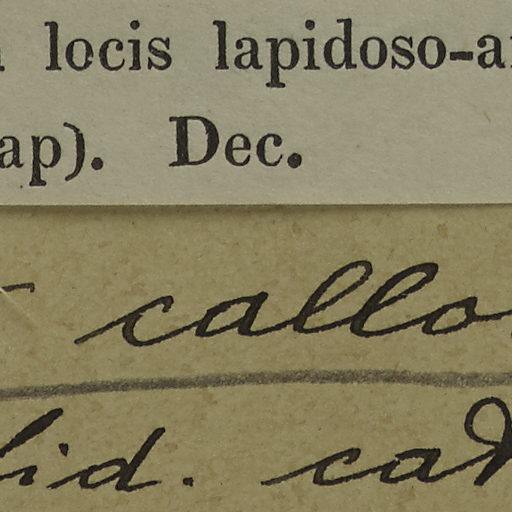 locis lapidoso-a
ap). Dec.
callo
id. ca